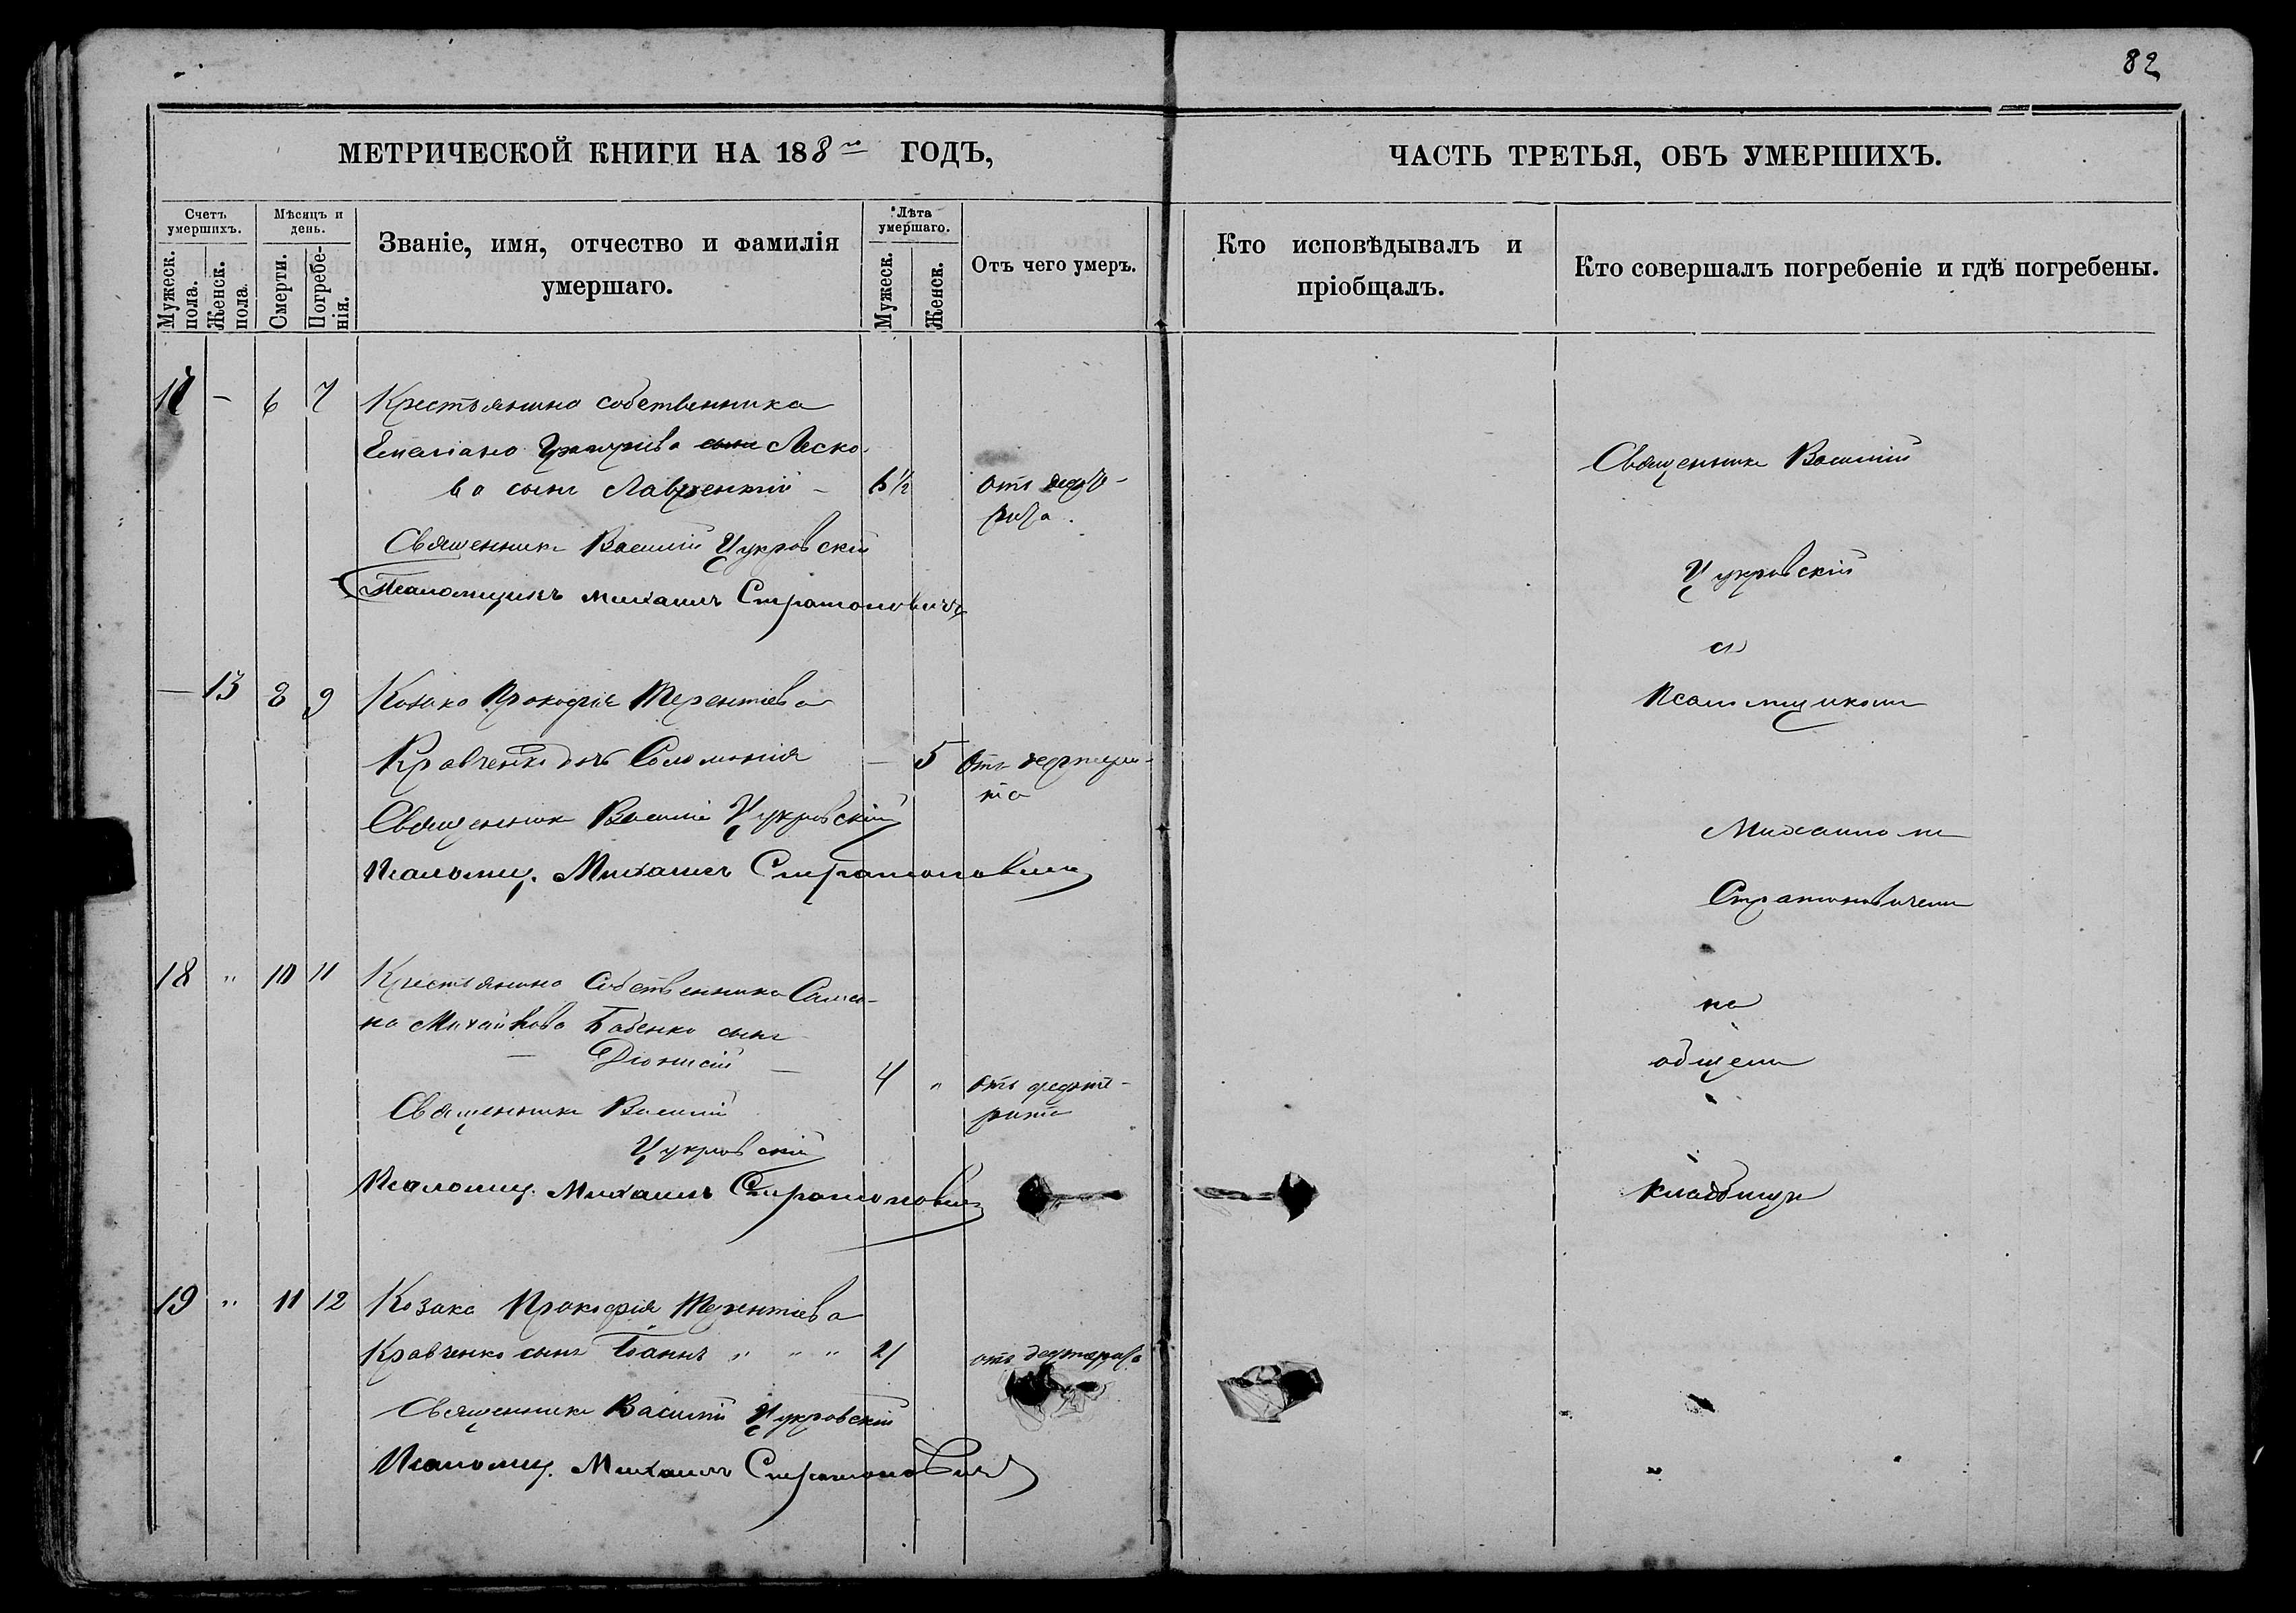 82
МЕТРИЧЕСКОЙ КНИГИ НА 188 ГОДЪ,
ЧАСТЬ ТРЕТЬЯ, ОБЪ УМЕРШИХЪ.
Счетъ умершихъ.
Мужеск. пола.
Женск. пола.
Мѣсяцъ и день.
Смерти.
Погребенія.
Званіе, имя, отчество и фамилія
умершаго.
Лѣта умершаго.
Мужеск.
Женск.
Отъ чего умеръ.
Кто исповѣдывалъ и
пріобщалъ.
Кто совершалъ погребеніе и гдѣ погребены.
17 — 6 7 Крестьянина собственника
Емеліана Леско-
ва сынъ Лаврентій — 6½ отъ
Священникъ Василій Цукровскій
Псаломщикъ Михаилъ Стратоновичъ
— 13 8 9 Козака Прокофія Терентіева
Кравченко дочь Соломонія — 5 Отъ
Священникъ Василій Цукровскій
Псаломщ. Михаилъ Стратоновичъ
18 " 10 11 Крестьянина Собственника
на Михайлова Бабенко сынъ
— Діонисій — 4 " отъ
Священникъ Василій
Цукровскій
Псаломщ. Михаилъ Стратоновичъ
19 " 11 12 Козака Прокофія Терентіева
Кравченко сынъ Іоаннъ " " " 2 отъ
Священникъ Василій Цукровскій
Псаломщ. Михаилъ Стратоновичъ
Священникъ Василій
Цукровскій
съ
Псаломщикомъ
Михаиломъ
Стратоновичемъ
на
общемъ
кладбищѣ